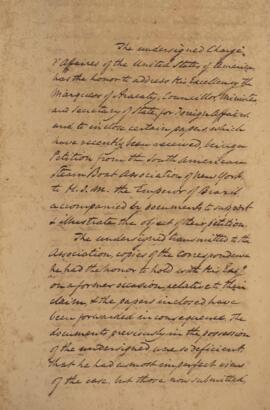 The undersigned Chargé
d'Affaires of the United States of America
has the honor to address His Excellency the
Marquess of Aracaty, Councillor, Minister
and Secretary of State for Foreign Affairs
and to inclose certain papers, which
have recently been received, being a
Petition from the South American
Steam Boat Association of New York
to H. I. M. the Emperor of Brazil
accompanied by documents to support
& illustrate the object of their petition.
The undersigned transmitted to the
Association, copies of the correspondence
he had the honor to hold with His Exy.
on a former occasion, relative to their
claim, & the papers inclosed have
been forwarded in consequence. The
documents previously in the possession
of the undersigned were so deficient
that he had a most imperfect view
of the case, but those now submitted,